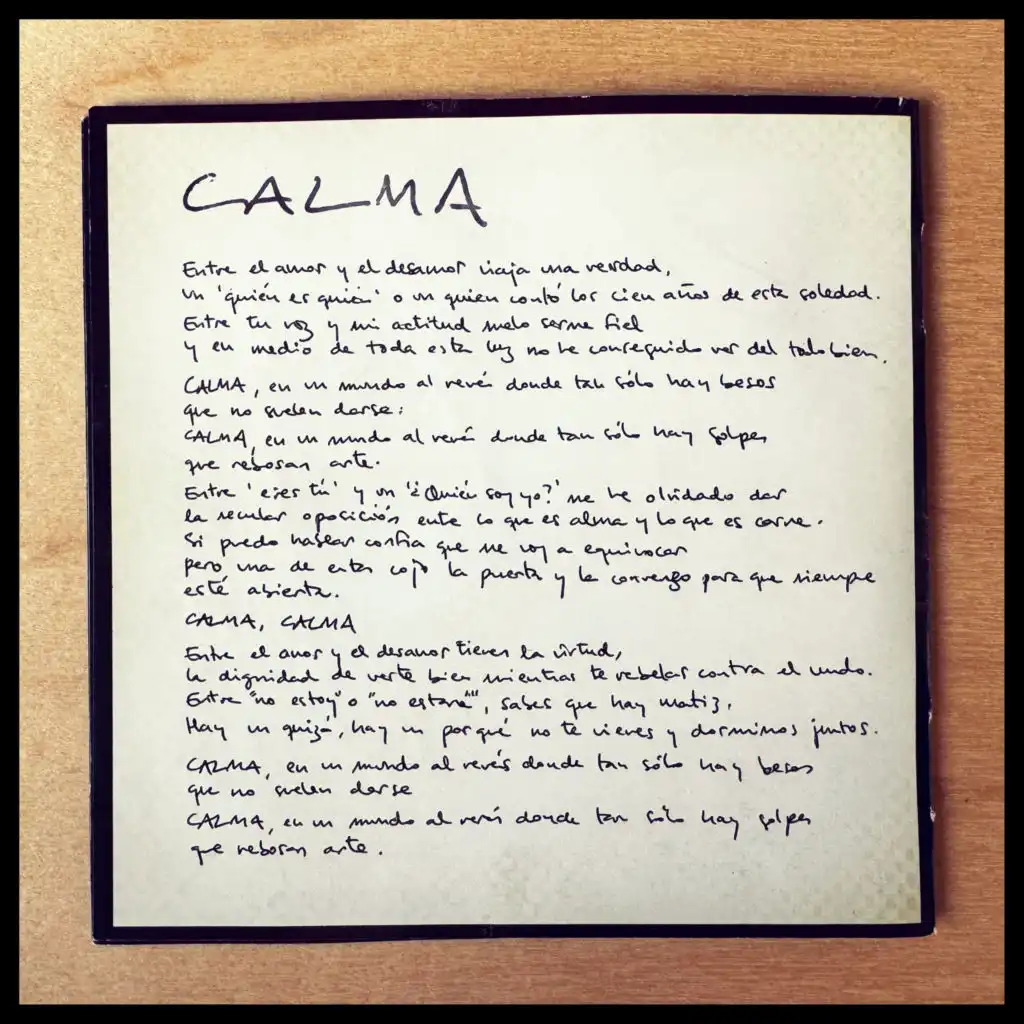 CALMA
Entre el amor y el desamor viaja una verdad,
un 'quién es quién' o un quien contó los cien años de esta soledad.
Entre tu voz y mi actitud suelo serme fiel
y en medio de toda esta luz no he conseguido ver del todo bien.
CALMA, en un mundo al revés donde tan sólo hay besos
que no suelen darse;
CALMA, en un mundo al revés donde tan sólo hay golpes
que rebosan arte.
Entre 'eres tú' y un '¿Quién soy yo?' me he olvidado dar
la secular oposición ente lo que es alma y lo que es carne.
Si puedo hablar confía que me voy a equivocar
pero una de estas cojo la puerta y la convenzo para que siempre
esté abierta.
CALMA, CALMA
Entre el amor y el desamor tienen la virtud,
la dignidad de verte bien mientras te rebelas contra el mundo.
Entre "no estoy" o "no estaré", sabes que hay matiz.
Hay un quizá, hay un porqué no te vienes y dormimos juntos.
CALMA, en un mundo al revés donde tan sólo hay besos
que no suelen darse
CALMA, en un mundo al revés donde tan sólo hay golpes
que rebosan arte.